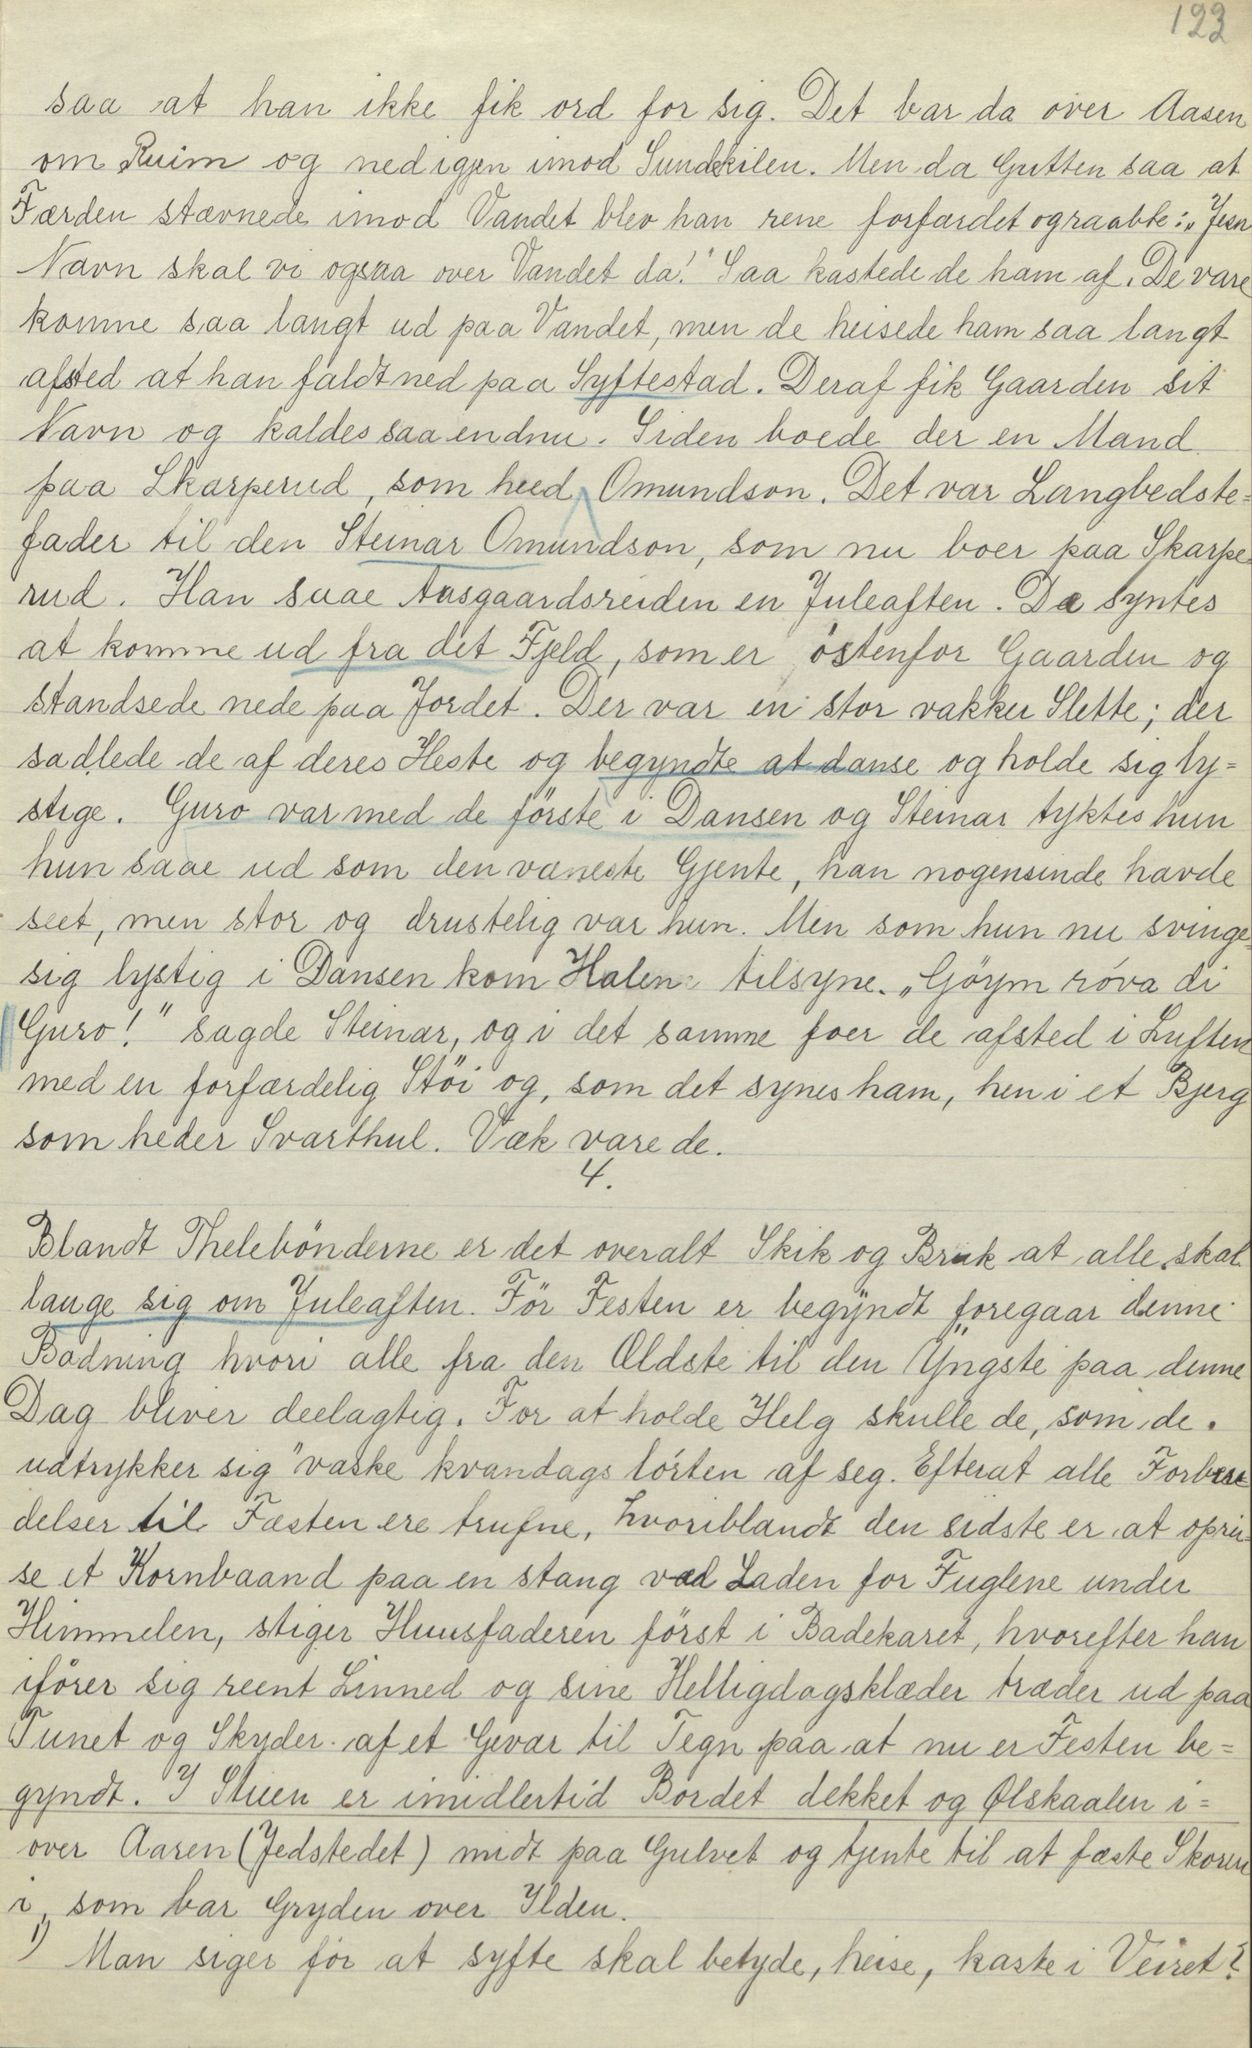 123
saa at han ikke fik ord for sig. Det bar da over Aasen
om Ruim og ned igjen imod Sundkilen. Men da Gutten saa at
Færden stævnede imod Vandet blev han rene forfærdet og raabte: „Jesu
Navn skal vi ogsaa over Vandet da!" Saa kastede de ham af. De vare
komne saa langt ud paa Vandet, men de heisede ham saa langt
afsted at han faldt ned paa Syftestad. Deraf fik Gaarden sit
Navn og kaldes saa endnu. Siden boede der en Mand
paa Skarperud, som heed Omundson. Det var Langbedste=
fader til den Steinar Omundson, som nu boer paa Skarpe=
rud. Han saae Aasgaardsreiden en Juleaften. De syntes
at komme ud fra det Fjeld, som er östenfor Gaarden og
standsede nede paa Jordet. Der var en stor vakker Slette; der
sadlede de af deres Heste og begyndte at danse og holde sig ly=
stige. Guro var med de förste i Dansen og Steinar tyktes hun
hun saae ud som den væneste Gjente, han nogensinde havde
seet, men stor og drustelig var hun. Men som hun nu svinge=
sig lystig i Dansen kom Halen tilsyne. „Göym róva di
Guro!" sagde Steinar, og i det samme foer de afsted i Luften
med en forfærdelig Stöi og, som det synes ham, hen i et Bjerg
som heder Svarthul. Væk vare de.
4.
Blandt Thelebönderne er det overalt Skik og Bruk at alle skal
lauge sig om Juleaften. För Festen er begyndt foregaar denne
Badning hvori alle fra den Ældste til den Yngste paa denne
Dag bliver deelagtig. For at holde Helg skulle de, som de
udtrykker sig "vaske kvandags lórten af seg. Efterat alle Forbere
delser til Fæsten ere trufne, hvoriblandt den sidste er at oprei=
se et Kornbaand paa en stang ved Laden for Fuglene under
Himmelen, stiger Huusfaderen först i Badekaret, hvorefter han
ifórer sig reent Linned og sine Helligdagsklæder træder ud paa
Tunet og Skyder af et Gevær til Tegn paa at nu er Festen be=
gyndt. I Stuen er imidlertid Bordet dekket og Ølskaalen i=
over Aaren (Jedstedet) midt paa Gulvet og tjente til at fæste Skoren
i, som bar Gryden over Ilden.
1) Man siger for at syfte skal betyde, heise, kaste i Veiret?